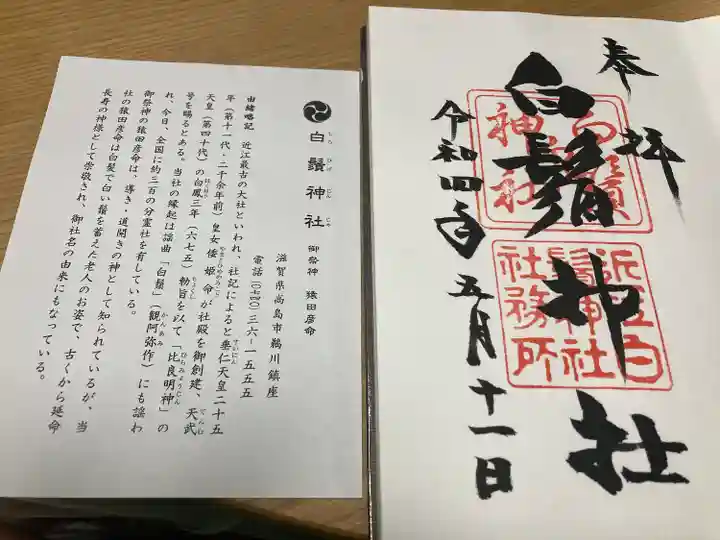 白鬚神社
しらひげじんじゃ
御祭神 猿田彦命
滋賀県高島市鵜川鎮座
電話(〇七四〇)三六ー一五五五
由緒略記 近江最古の大社といわれ、社記によると垂仁天皇二十五
すいにん
年(第十一代・二千余年前)皇女倭姫命が社殿を御創建、天武
やまとひめのみこと
てんむ
天皇(第四十代)の白鳳三年(六七五)勅旨を以て「比良明神」の
はくほう
ちょくし
ひらみょうじん
号を賜るとある。当社の縁起は謡曲「白鬚」(観阿弥作)にも謡わ
かんあみ
れ、今日、全国に約三百の分霊社を有している。
御祭神の猿田彦命は、導き・道開きの神として知られているが、当
社の猿田彦命は白髪で白い鬚を蓄えた老人のお姿で、古くから延命
長寿の神様として崇敬され、御社名の由来にもなっている。
奉拝
白鬚神社
令和四年五月十一日
白鬚神社
近江白
鬚神社
社務所